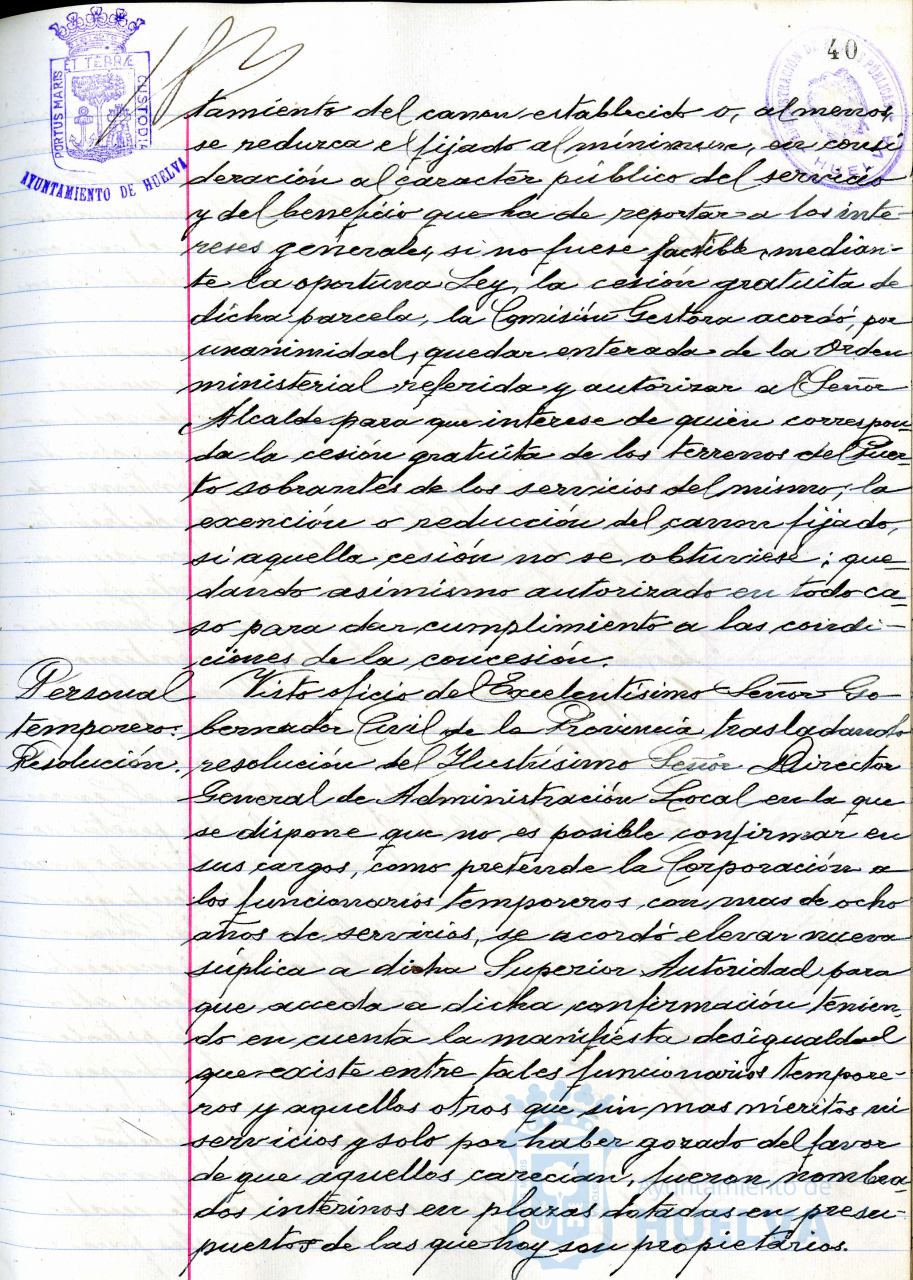 40
PORTUS MARIS
ET TERRÆ
CUSTODIA
AYUNTAMIENTO DE HUELVA
HUELVA
tamiento del canon establecido o, al menos,
se reduzca el fijado al mínimum, en consi
deración al caracter público del servicio
y del beneficio que ha de reportar a los inte-
reses generales, si no fuese factible, median-
te la oportuna Ley, la cesión gratuita de
dicha parcela, la Comisión Gestora acordó, por
unanimidad, quedar enterada de la Orden
ministerial referida y autorizar al Señor
Alcalde para que interese de quien correspon
da la cesión gratuita de los terrenos del Puer-
to sobrantes de los servicios del mismo; la
exención o reducción del canon fijado,
si aquella cesión no se obtuviese; que-
dando asimismo autorizado en todo ca-
so para dar cumplimiento a las condi-
ciones de la concesión.
Personal
temporero.
Resolución.
Visto oficio del Excelentísimo Señor Go
bernador Civil de la Provincia trasladando
resolución del Ilustrísimo Señor Director
General de Administración Local en la que
se dispone que no es posible confirmar en
sus cargos, como pretende la Corporación a
los funcionarios temporeros con mas de ocho
años de servicios, se acordó elevar nueva
súplica a dicha Superior Autoridad para
que acceda a dicha confirmación tenien-
do en cuenta la manifiesta desigualdad
que existe entre tales funcionarios tempore-
ros y aquellos otros que sin mas méritos ni
servicios y solo por haber gozado del favor
de que aquellos carecían, fueron nombra-
dos interinos en plazas dotadas en presu-
puestos de las que hoy son propietarios.
Ayuntamiento de
HUELVA